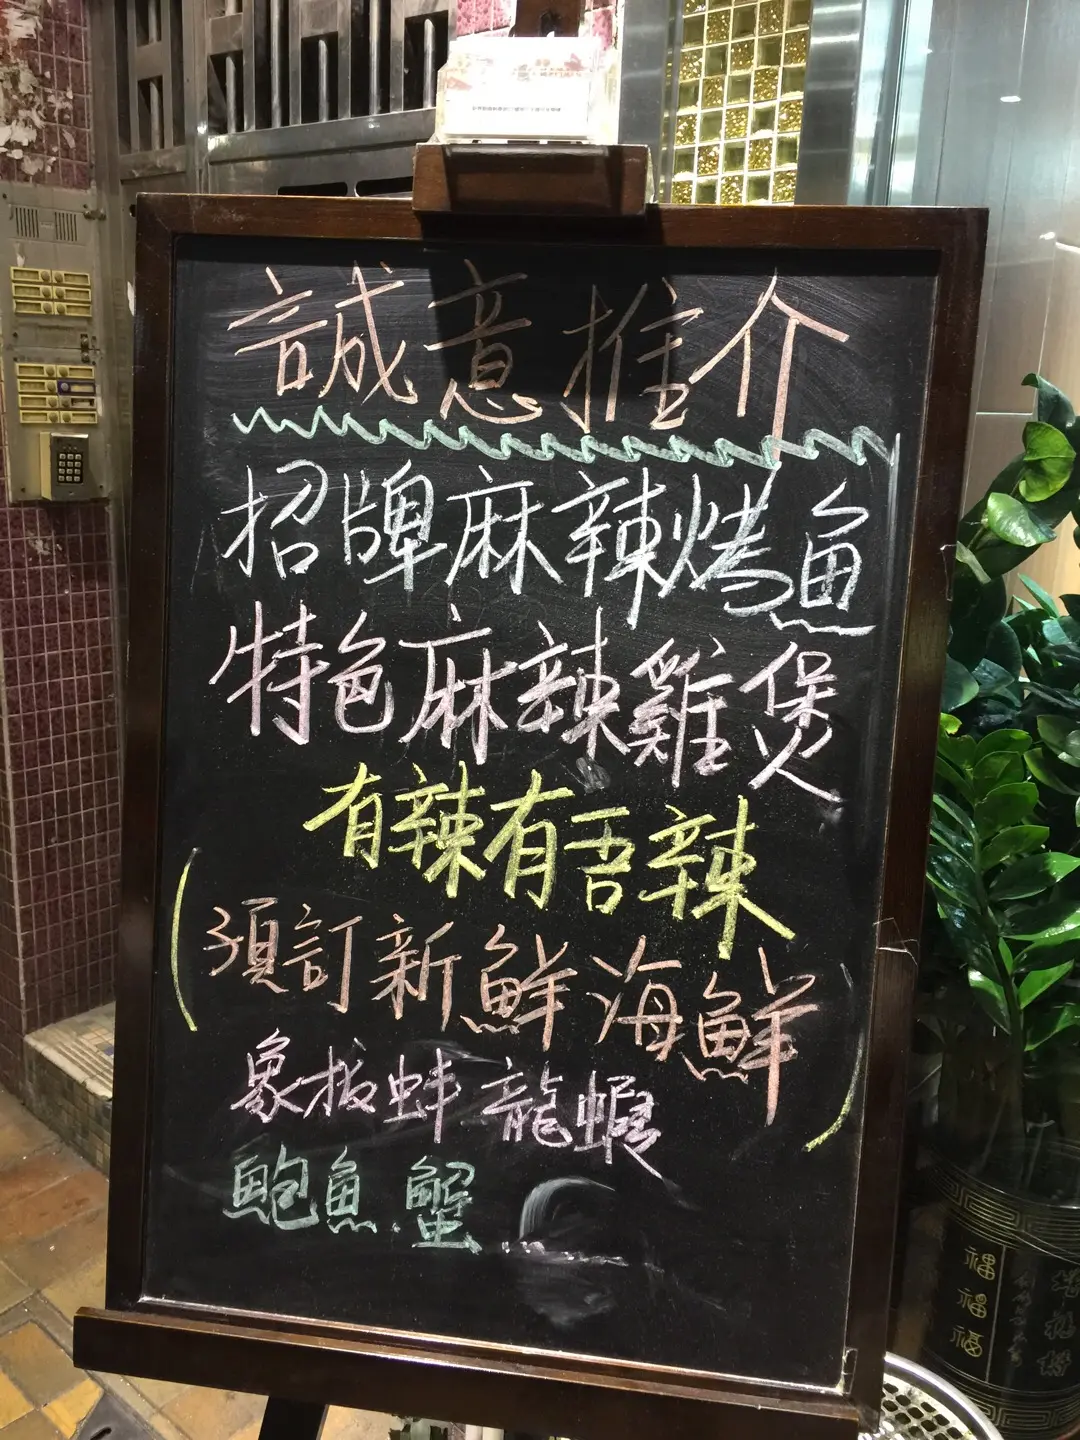 誠意推介
招牌麻辣烤魚
特色麻辣雞煲
有辣有吾辣
(預訂新鮮海鮮)
象拔蚌 龍蝦
鮑魚.蟹......
福
福
福